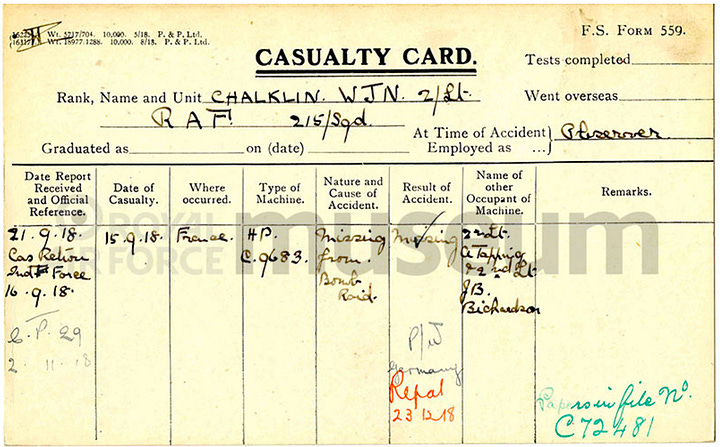 (16225) Wt. 5717/704. 10,000. 5/18. P. & P. Ltd.
(16117) Wt. 18977.1288. 10,000. 8/18. P. & P. Ltd.
F.S. FORM 559.
CASUALTY CARD.
Tests completed
Rank, Name and Unit CHALKLIN. WJN. 2/Lt.
Went overseas
RAF. 215/Sqd.
At Time of Accident } Observer
Graduated as on (date) Employed as ...
Date Report Received and Official Reference.
Date of Casualty.
Where occurred.
Type of Machine.
Nature and Cause of Accident.
Result of Accident.
Name of other Occupant of Machine.
Remarks.
21.9.18.
Cas Return
Ind F Force
16.9.18.
C.P. 29
2.11.18
15.9.18.
France.
H.P.
C.9683.
Missing
from.
Bomb
Raid.
Missing
P/W
Germany
Repat
23 12 18
2nd Lt.
A Tapping
& 2nd Lt
J.B.
Richardson
Papers in file No.
C72481
ROYAL
AIR FORCE
museum